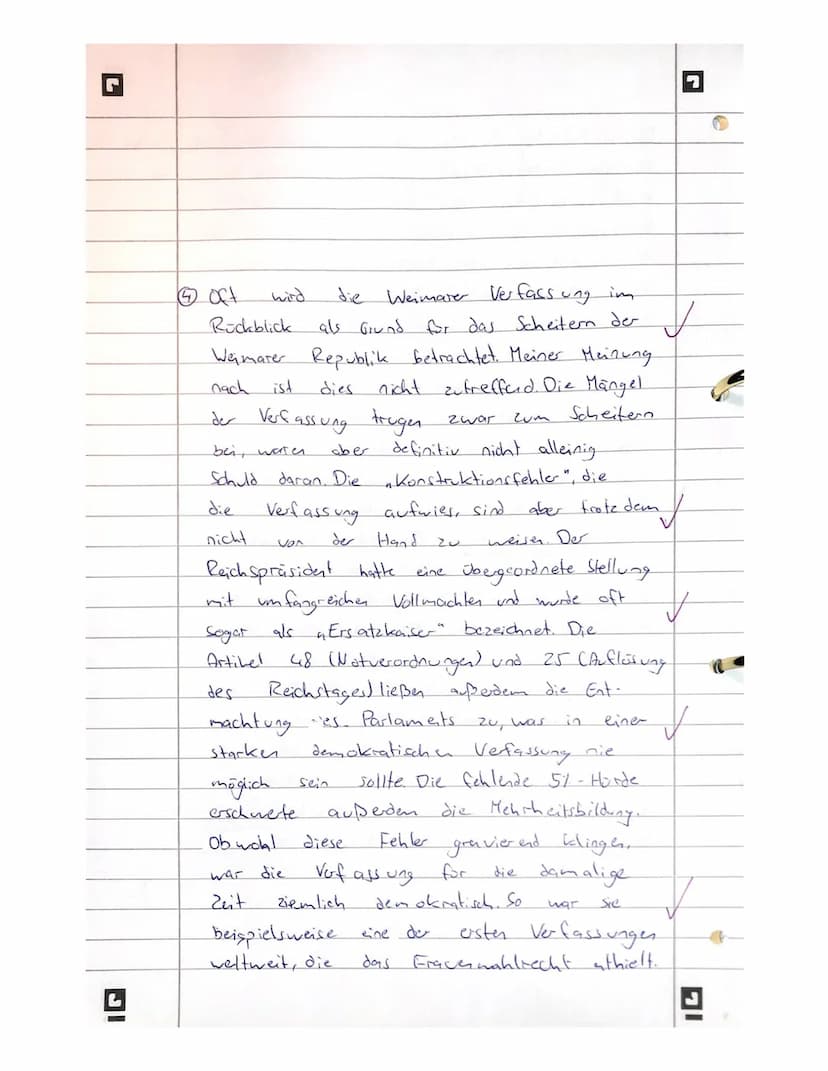 ④ Oft wird die Weimarer Verfassung im
Rückblick als Grund für das Scheitern der
Weimarer Republik betrachtet. Meiner Meinung
nach ist dies nicht zutreffend. Die Mängel
der Verfassung trugen zwar zum Scheitern
bei, waren aber definitiv nicht alleinig
Schuld daran. Die „Konstruktionsfehler", die
die Verfassung aufwies, sind aber trotzdem
nicht von der Hand zu weisen. Der
Reichspräsident hatte eine übergeordnete Stellung
mit umfangreichen Vollmachten und wurde oft
sogar als „Ersatzkaiser" bezeichnet. Die
Artikel 48 (Notverordnungen) und 25 (Auflösung
des Reichstages) ließen außerdem die Ent-
machtung des Parlaments zu, was in einer
starken demokratischen Verfassung nie
möglich sein sollte. Die fehlende 5%-Hürde
erschwerte außerdem die Mehrheitsbildung.
Obwohl diese Fehler gravierend klingen,
war die Verfassung für die damalige
Zeit ziemlich demokratisch. So war sie
beispielsweise eine der ersten Verfassungen
weltweit, die das Frauenwahlrecht enthielt.